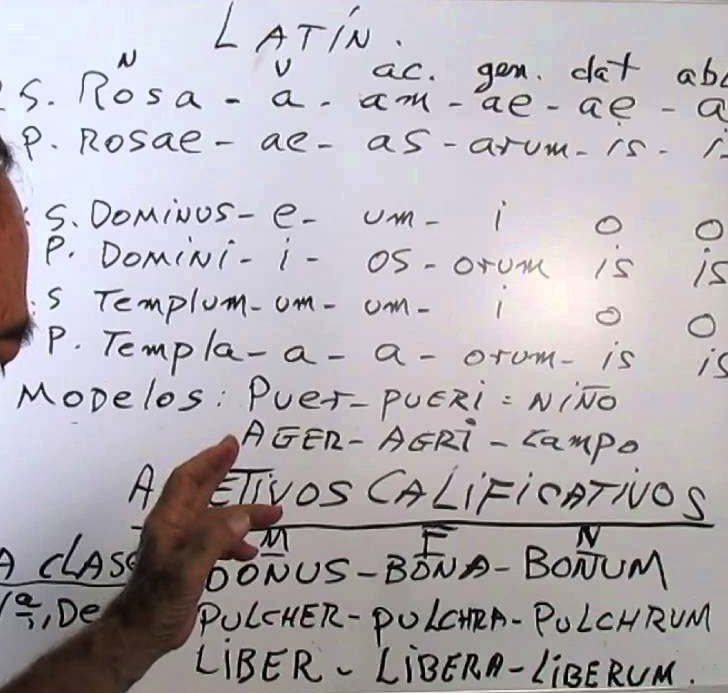 LATÍN.
N V ac. gen. dat
S. Rosa - a - am - ae - ae - a
P. ROSAE - ae - as - arum - is -
S. DOMINUS - e - um - i o o
P. DOMINI - i - os - orum is is
S Templum - um - um - i o o
P. Templa - a - a - orum - is is
MODELOS: PUER - PUERI = NIÑO
AGER - AGRI - CAMPO
CALIFICATIVOS
M F N
BONUS - BONA - BONUM
PULCHER - PULCHRA - PULCHRUM
LIBER - LIBERA - LIBERUM.